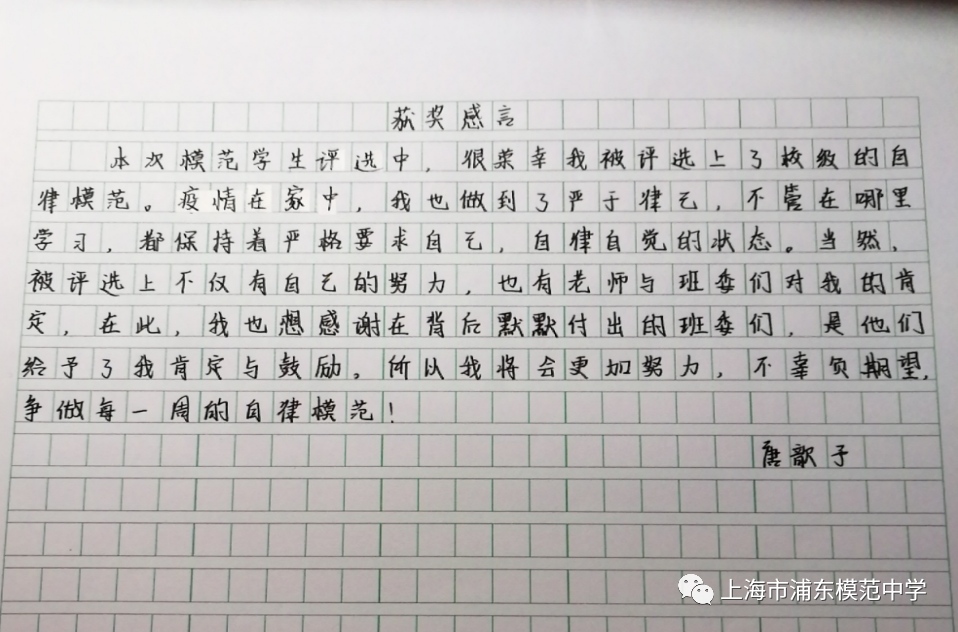 获奖感言
本次模范学生评选中，很荣幸我被评选上了校级的自
律模范。疫情在家中，我也做到了严于律己，不管在哪里
学习，都保持着严格要求自己，自律自觉的状态。当然，
被评选上不仅有自己的努力，也有老师与班委们对我的肯
定，在此，我也想感谢在背后默默付出的班委们，是他们
给予了我肯定与鼓励。所以我将会更加努力，不辜负期望，
争做每一周的自律模范！
唐歆予
上海市浦东模范中学